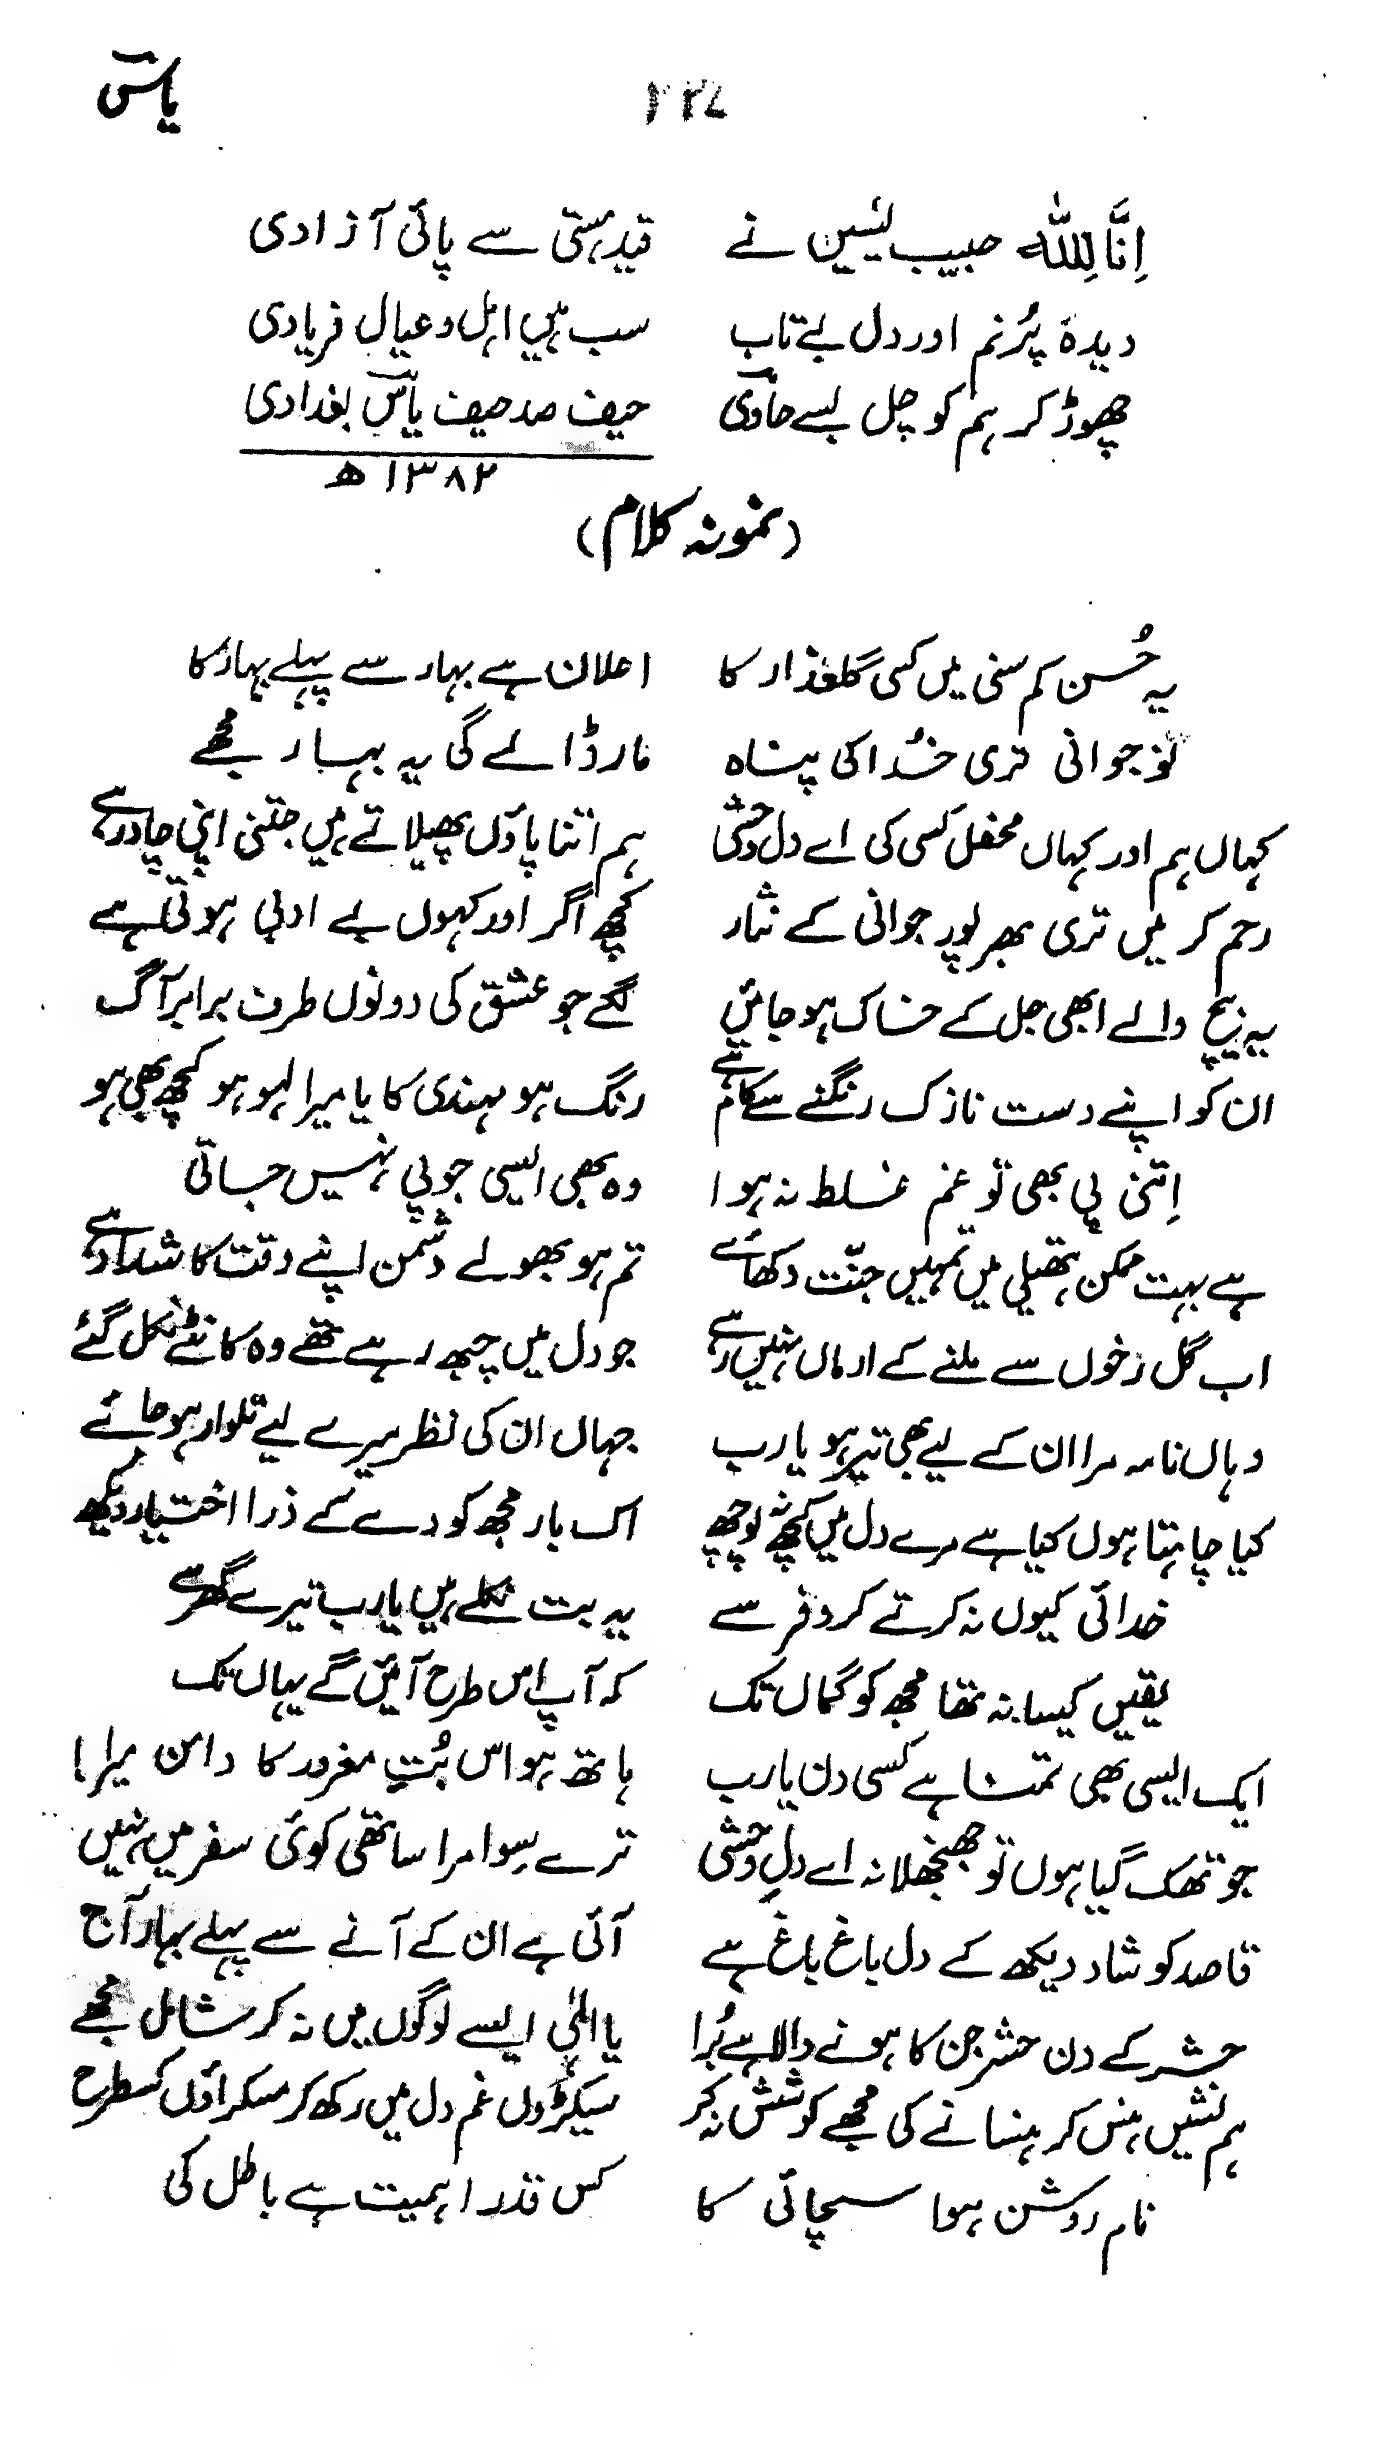 یاسؔ
۲۲۷
اِنَّا لِلّٰہ حبیب یٰسیں نے قید ہستی سے پائی آزادی
دیدۂ پُرنم اور دل بے تاب سب ہیں اہل و عیال فریادی
چھوڑ کر ہم کو چل بسے حاویؔ حیف صد حیف یاسؔ بغدادی
۱۳۸۲ ھ
(نمونہ کلام)
یہ حُسن کم سنی میں کسی گلعذار کا اعلان ہے بہار سے پہلے بہار کا
نوجوانی تری خُدا کی پناہ مار ڈالے گی یہ بہار مجھے
کہاں ہم اور کہاں محفل کسی کی اے دل وحشی ہم اتنا پاؤں پھیلاتے ہیں جتنی اپنی چادر ہے
رحم کر میں تری بھرپور جوانی کے نثار کچھ اگر اور کہوں بے ادبی ہوتی ہے
یہ بیچ والے ابھی جل کے خاک ہو جائیں لگے جو عشق کی دونوں طرف برابر آگ
ان کو اپنے دست نازک رنگنے سے کام ہے رنگ ہو مہندی کا یا میرا لہو ہو کچھ بھی ہو
اِتنی پی بھی تو غم غلط نہ ہوا وہ بھی ایسی جو پی نہیں جاتی
ہے بہت ممکن ہتھیلی میں تمہیں جنّت دکھائے تم ہو بھولے دشمن اپنے وقت کا شداد ہے
اب گل رخوں سے ملنے کے ارماں نہیں رہے جو دل میں چبھ رہے تھے وہ کانٹے نکل گئے
وہاں نامہ مرا ان کے لیے بھی تیر ہو یارب جہاں ان کی نظر میرے لیے تلوار ہو جائے
کیا چاہتا ہوں کیا ہے مرے دل میں کچھ نہ پوچھ اک بار مجھ کو دے کے ذرا اختیار دیکھ
خدائی کیوں نہ کرتے کروفر سے یہ بت نکلے ہیں یارب تیرے گھر سے
یقیں کیسا نہ تھا مجھ کو گماں تک کہ آپ اس طرح آئیں گے یہاں تک
ایک ایسی بھی تمنا ہے کسی دن یارب ہاتھ ہو اس بُتِ مغرور کا دامن میرا
جو تھک گیا ہوں تو جھنجھلا نہ اے دلِ وحشی ترے سِوا مرا ساتھی کوئی سفر میں نہیں
قاصد کو شاد دیکھ کے دل باغ باغ ہے آئی ہے ان کے آنے سے پہلے بہار آج
حشر کے دن حشر جن کا ہونے والا ہے بُرا یا الٰہی ایسے لوگوں میں نہ کر شامل مجھے
ہم نشیں ہنس کر ہنسانے کی مجھے کوشش نہ کر سیکڑوں غم دل میں رکھ کر مسکراؤں کسطرح
نام روشن ہوا سچائی کا کس قدر اہمیت ہے باطل کی